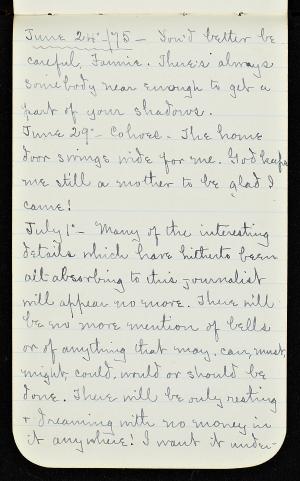 June 24th /75 — You'd better be
careful, Fannie. There's always
somebody near enough to get a
part of your shadows.
June 29th - Cohoes - The home
door swings wide for me. God keeps
me still a mother to be glad I
came!
July 1st - Many of the interesting
details which have hitherto been
all-absorbing to this journalist
will appear no more. There will
be no more mention of bells
or of anything that may, can, must,
might, could, would or should be
done. There will be only resting
+ dreaming with no money in
it anywhere! I want it under-